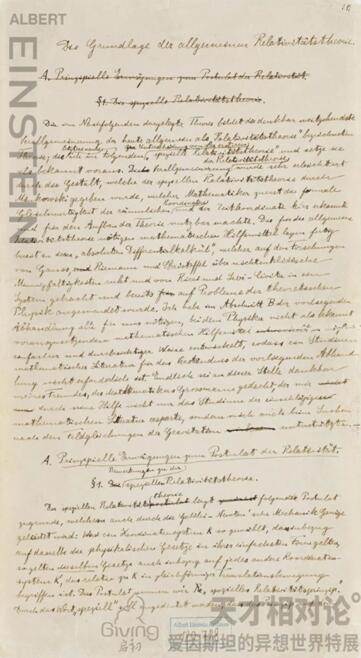 ALBERT
EINSTEIN
Die Grundlage der allgemeinen Relativitätstheorie.
A. Prinzipielle Erwägungen zum Postulat der Relativität.
§1. Die spezielle Relativitätstheorie.
Die im Nachfolgenden dargelegte Theorie bildet die denkbar weitgehendste
Verallgemeinerung der heute allgemein als "Relativitätstheorie" bezeichneten
Theorie; die
im folgenden "spezielle Relativitätstheorie" und setze sie
als bekannt voraus. Die Verallgemeinerung der Relativitätstheorie wurde sehr erleichtert
durch die Gestalt, welche der speziellen Relativitätstheorie durch
Minkowski gegeben wurde, welcher Mathematiker zuerst die formale
Gleichwertigkeit der räumlichen Koordinaten und der Zeitkoordinate klar erkannte
und für den Aufbau der Theorie nutzbar machte. Die für die allgemeine
Relativitätstheorie nötigen mathematischen Hilfsmittel lagen fertig
bereit in dem "absoluten Differentialkalkül", welcher auf den Forschungen
von Gauss, Riemann und Christoffel über nichteuklidische
Mannigfaltigkeiten ruht und von Ricci und Levi-Civita in ein
System gebracht und bereits auf Probleme der theoretischen
Physik angewendet wurde. Ich habe im Abschnitt B der vorliegenden
Abhandlung alle für uns nötigen, bei dem Physiker nicht als bekannt
vorauszusetzenden mathematischen Hilfsmittel in möglichst
einfacher und durchsichtiger Weise entwickelt, sodass ein Studium
mathematischer Literatur für das Verständnis der vorliegenden Abhand-
lung nicht erforderlich ist. Endlich sei an dieser Stelle dankbar
meines Freundes, des Mathematikers Grossmann gedacht, der mir
durch seine Hilfe nicht nur das Studium der einschlägigen
mathematischen Literatur ersparte, sondern mich auch beim Suchen
nach den Feldgleichungen der Gravitation unterstützte.
A. Prinzipielle Erwägungen zum Postulat der Relativität.
Bemerkungen zu der
§1. Die spezielle Relativitätstheorie.
Der speziellen Relativitätstheorie liegt folgendes Postulat
zugrunde, welchem auch durch die Galilei-Newton'sche Mechanik Genüge
geleistet wird: Wird ein Koordinatensystem K so gewählt, dass in bezug
auf dasselbe die physikalischen Gesetze in ihrer einfachsten Form gelten,
so gelten dieselben Gesetze auch in bezug auf jedes andere Koordinaten-
system K', das relativ zu K in gleichförmiger Translationsbewegung
begriffen ist. Dies Postulat nennen wir "spezielles Relativitätsprinzip".
Durch das Wort "speziell" soll angedeutet werden, dass
Giving
启初
天才相对论
爱因斯坦的异想世界特展